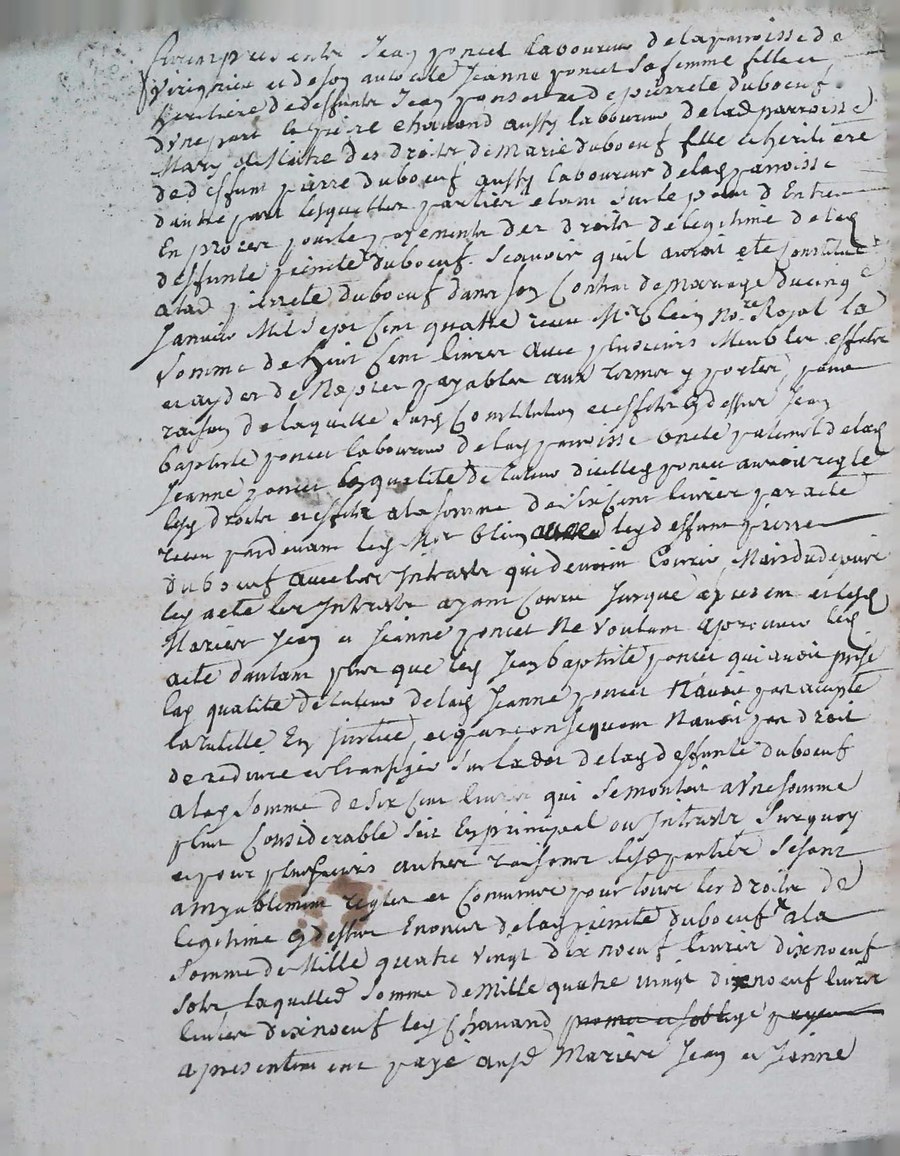 furent presents Jean poncet laboureur de la parroisse de
Virignieu et de son autorité Jeanne poncet sa femme fille et
heritiere de deffunts Jean poncet et de pierrete duboeuf
dune part et pierre chavand aussy laboureur de lad parroisse
Mary et Maitre des droits de Marie duboeuf fille et heritiere
de deffunt pierre duboeuf aussy laboureur de lad parroisse
dautre part lesquelles parties etant sur le point d Entrer
En proces pour le payement des droits de legitime de lad
deffunte pierrete duboeuf scavoir quil auroit ete Constitué
a lad pierrete duboeuf dans son Contrat de mariage du cinq
Janvier Mil sept Cent quatre receu Mr blein Nore Royal la
Somme de huit Cent livres avec plusieurs Meubles effets
payables aux termes y portés, pour
raison de laquelle susd Constitution et effets cy dessus Jean
baptiste poncet laboureur de lad parroisse oncle paternel de lad
Jeanne poncet En qualité de tuteur dicelle poncet auroit reglé
lesd droits et effets a la somme de Six Cent livres par acte
receu pardevant led Mr blein led deffunt pierre
duboeuf avec les Intrests qui devoient Courir, Mais du depuis
led acte les Intrests ayant Couru Jusque a present et lesd
Mariés Jean et Jeanne poncet Ne voulant aprouver led
acte dautant plus que led Jean baptiste poncet qui avoit prise
lad qualité de tuteur de lad Jeanne poncet Navoit pas accepté
la tutelle En Justice, et par consequent Navoit pas droit
de reduire et transiger sur la dot de lad deffunte duboeuf
a lad somme de six Cent livres qui se montoit a Une somme
plus Considerable soit En principal ou Intrests surquoy
et pour plusieurs autres raisons lesd parties se sont
amyablement reglés et Convenus pour tous les droits de
legitime cy dessus Enoncés de lad pierrete duboeuf a la
Somme de Mille quatre vingt dix neuf livres dix neuf
sols laquelle somme de Mille quatre vingt dix neuf livres
livres dix neuf led Chavand promet et soblige payer
a presentement payé ausd Mariés Jean et Jeanne